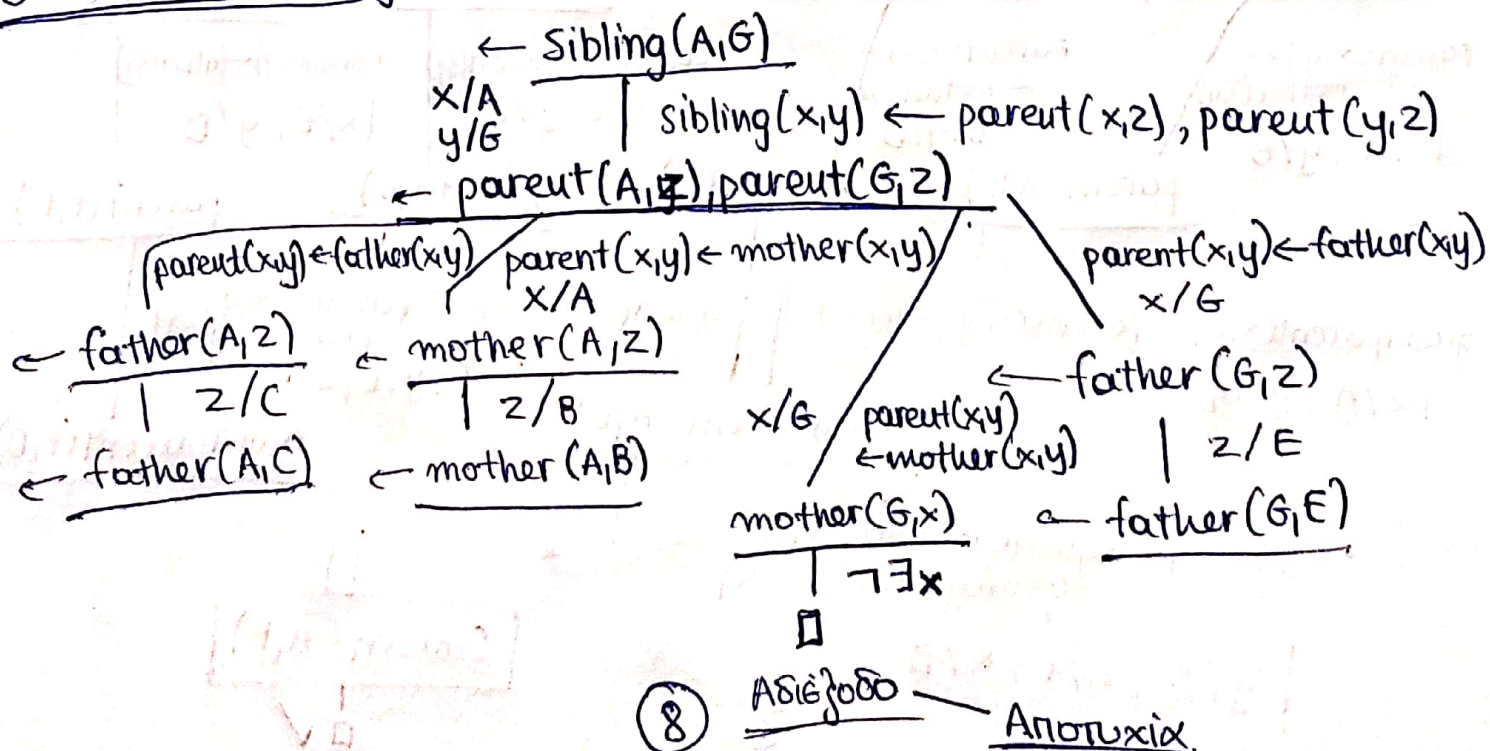 ← Sibling(A,G)
x/A
y/G
sibling(x,y) ← parent(x,z), parent(y,z)
← parent(A,z), parent(G,z)
parent(x,y) ← father(x,y)
parent(x,y) ← mother(x,y)
x/A
parent(x,y) ← father(x,y)
x/G
← father(A,z)
z/C
← father(A,C)
← mother(A,z)
z/B
← mother(A,B)
x/G
parent(x,y)
← mother(x,y)
mother(G,x)
¬∃x
□
← father(G,z)
z/E
← father(G,E)
8
Αδιέξοδο
Αποτυχία